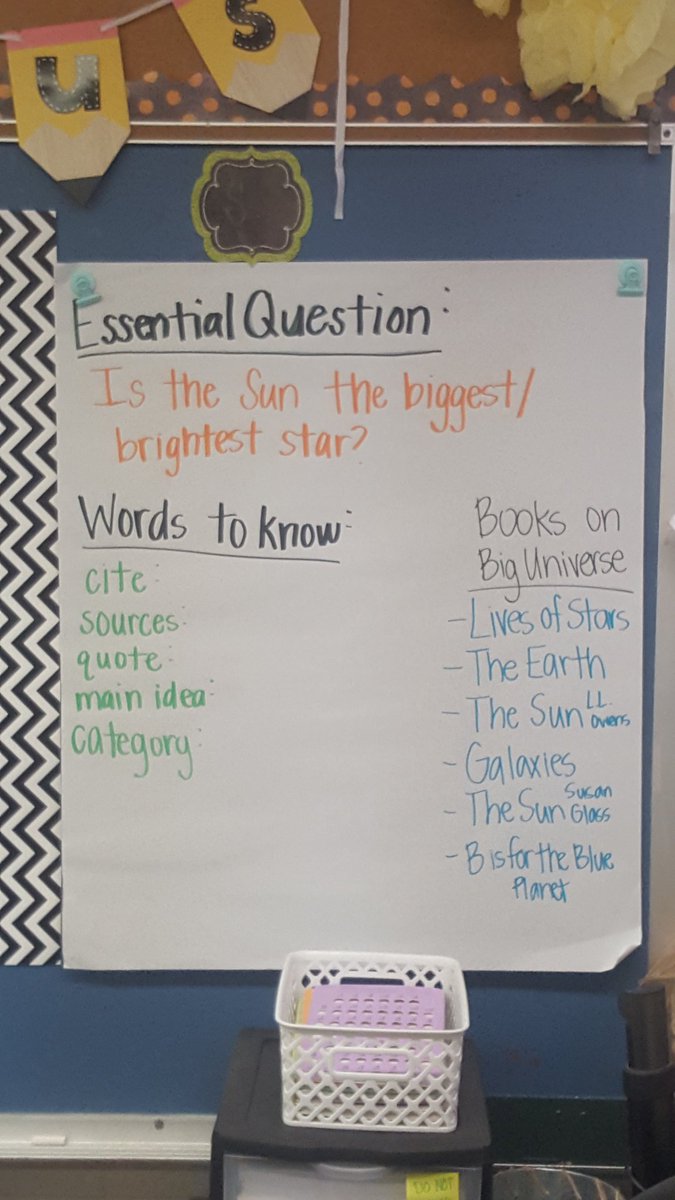 us
Essential Question:
Is the Sun the biggest/
brightest star?
Words to know:
cite:
sources:
quote:
main idea:
category:
Books on
Big Universe
- Lives of Stars
- The Earth
- The Sun LL. Owens
- Galaxies
- The Sun Susan Glass
- B is for the Blue
Planet
DO NOT